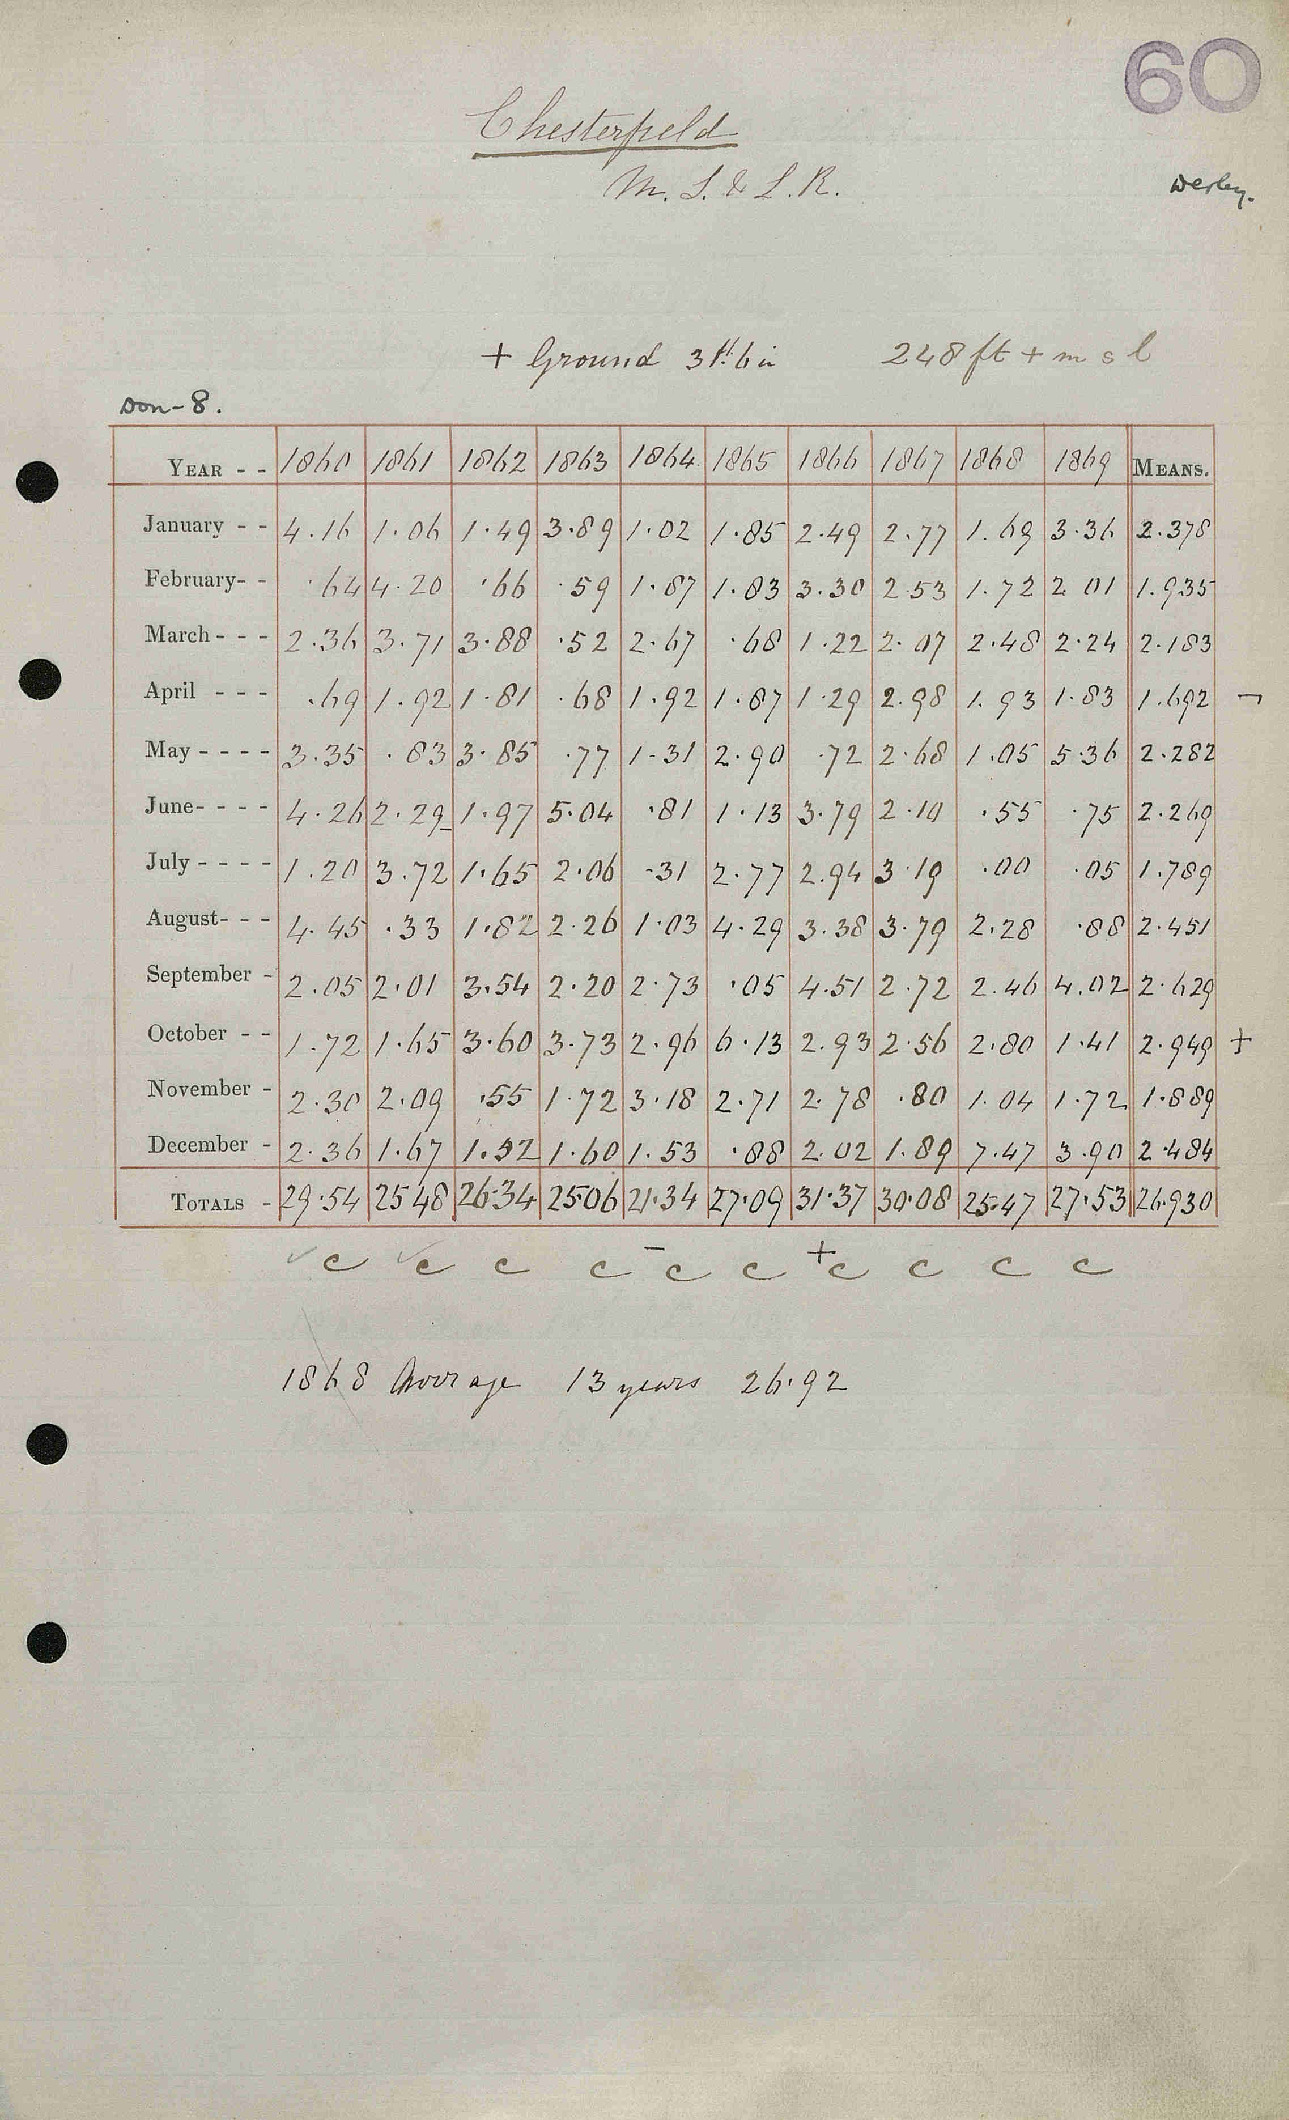 60
Chesterfield
M. S. & L. R.
Derby.
+ Ground 3ft 6in 248 ft + m s l
Don-8.
YEAR - - 1860 1861 1862 1863 1864 1865 1866 1867 1868 1869 MEANS.
January - - 4.16 1.06 1.49 3.89 1.02 1.85 2.49 2.77 1.69 3.36 2.378
February- - .64 4.20 .66 .59 1.87 1.83 3.30 2.53 1.72 2.01 1.935
March - - - 2.36 3.71 3.88 .52 2.67 .68 1.22 2.07 2.48 2.24 2.183
April - - - .69 1.92 1.81 .68 1.92 1.87 1.29 2.98 1.93 1.83 1.692 -
May - - - - 3.35 .83 3.85 .77 1.31 2.90 .72 2.68 1.05 5.36 2.282
June- - - - 4.26 2.29 1.97 5.04 .81 1.13 3.79 2.10 .55 .75 2.269
July - - - - 1.20 3.72 1.65 2.06 .31 2.77 2.94 3.19 .00 .05 1.789
August- - - 4.45 .33 1.82 2.26 1.03 4.29 3.38 3.79 2.28 .88 2.451
September - 2.05 2.01 3.54 2.20 2.73 .05 4.51 2.72 2.46 4.02 2.629
October - - 1.72 1.65 3.60 3.73 2.96 6.13 2.93 2.56 2.80 1.41 2.949 +
November - 2.30 2.09 .55 1.72 3.18 2.71 2.78 .80 1.04 1.72 1.889
December - 2.36 1.67 1.52 1.60 1.53 .88 2.02 1.89 7.47 3.90 2.484
TOTALS - 29.54 25 48 26.34 25.06 21.34 27.09 31.37 30.08 25.47 27.53 26.930
- +
c c c c c c c c c c
1868 Average 13 years 26.92